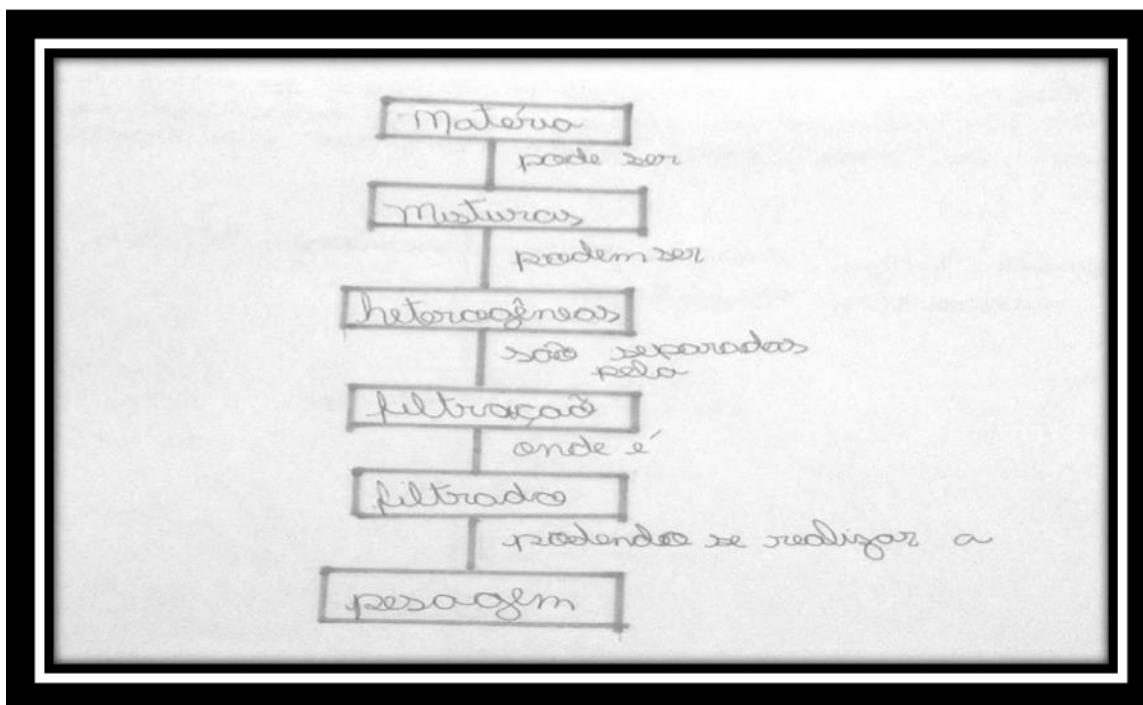 Matéria
pode ser
Misturas
podem ser
heterogêneas
são separadas
pela
filtração
onde é
filtrado
podendo se realizar a
pesagem